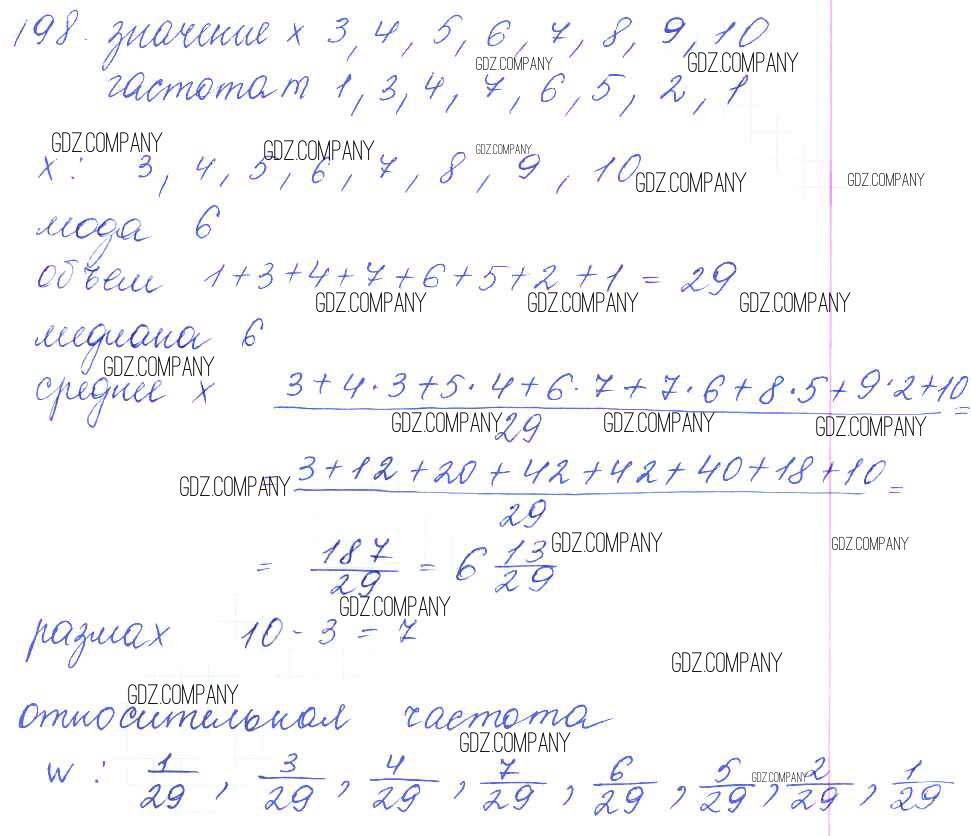 198. значение x 3, 4, 5, 6, 7, 8, 9, 10
GDZ.COMPANY GDZ.COMPANY
частота m 1, 3, 4, 7, 6, 5, 2, 1
GDZ.COMPANY GDZ.COMPANY GDZ.COMPANY
x: 3, 4, 5, 6, 7, 8, 9, 10
GDZ.COMPANY GDZ.COMPANY
мода 6
объем 1+3+4+7+6+5+2+1 = 29
GDZ.COMPANY GDZ.COMPANY GDZ.COMPANY
медиана 6
GDZ.COMPANY
среднее x 3+4·3+5·4+6·7+7·6+8·5+9·2+10 =
29
GDZ.COMPANY GDZ.COMPANY GDZ.COMPANY
= 3+12+20+42+42+40+18+10 =
29
GDZ.COMPANY
= 187/29 = 6 13/29
GDZ.COMPANY GDZ.COMPANY
GDZ.COMPANY
размах 10 - 3 = 7
GDZ.COMPANY
GDZ.COMPANY
относительная частота
GDZ.COMPANY
w: 1/29, 3/29, 4/29, 7/29, 6/29, 5/29, 2/29, 1/29
GDZ.COMPANY